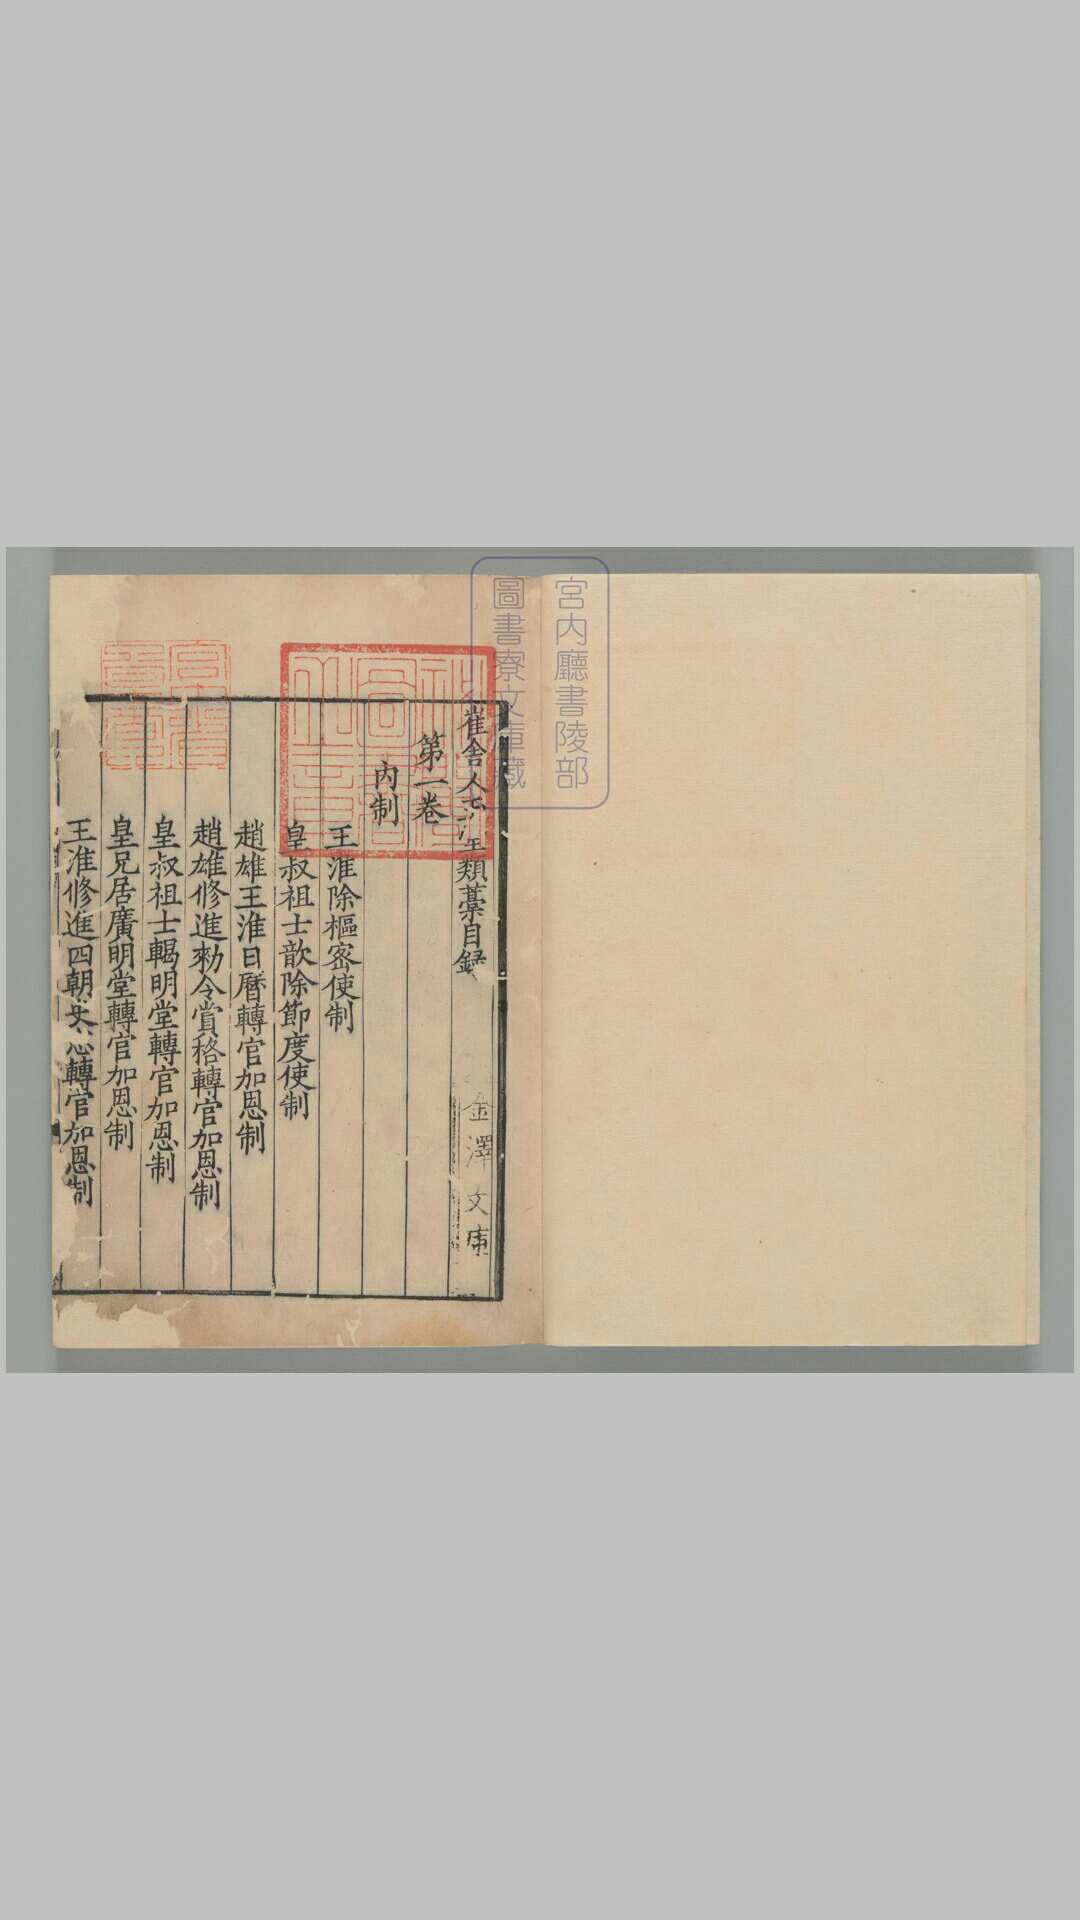 宮内廳書陵部
圖書寮文庫藏
崔舍人玉堂類藁目録
金澤文庫
第一卷
内制
王淮除樞密使制
皇叔祖士歆除節度使制
趙雄王淮日曆轉官加恩制
趙雄修進勑令賞格轉官加恩制
皇叔祖士輵明堂轉官加恩制
皇兄居廣明堂轉官加恩制
王淮修進四朝史志轉官加恩制